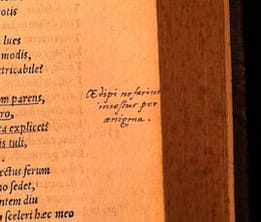 otis
lues
modis,
tricabile?
m parens,
ro,
ra explicet?
is tuli,
ectus ferum
no sedet,
ntem diu
sceleri hæc meo
Œdipi nefarius
incestus per
ænigma.